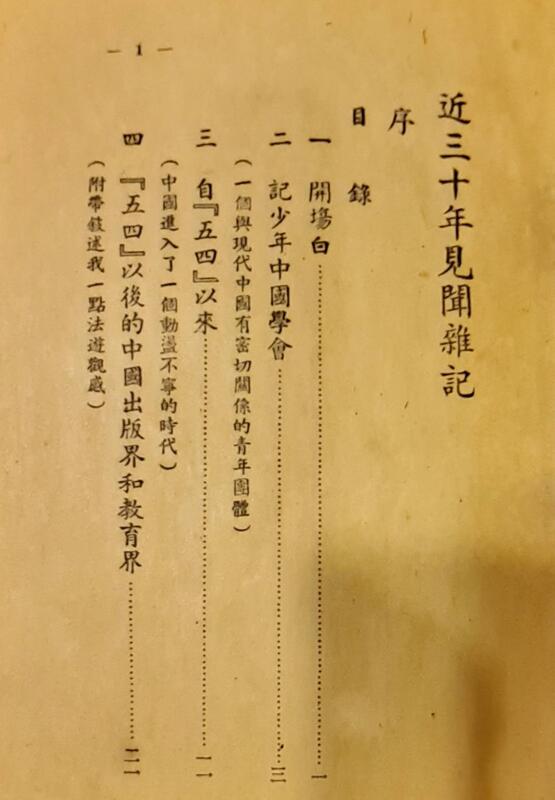 近三十年見聞雜記
序
目錄
一 開場白……一
二 記少年中國學會……三
(一個與現代中國有密切關係的青年團體)
三 自『五四』以來……一一
(中國進入了一個動盪不寧的時代)
四 『五四』以後的中國出版界和教育界……二一
(附帶敍述我一點法遊觀感)
— 1 —